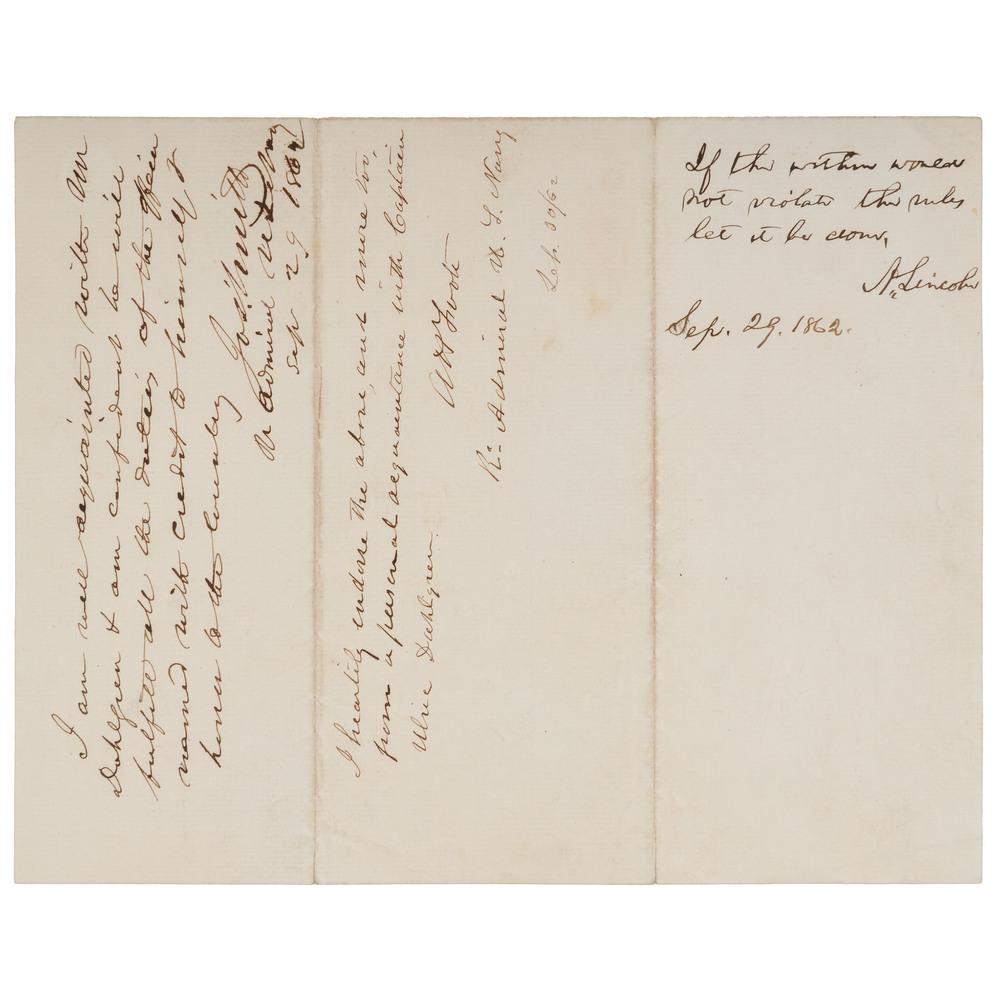 I am well acquainted with Mr
Dahlgren & am confident he will
fulfill all the duties of the office
named with credit to himself &
honor to the Country
Jos. Smith
Rr Admiral U S Navy
Sep 29 1862
I heartily endorse the above, and more too,
from a personal acquaintance with Captain
Ulric Dahlgren.
A H Foote
Rr Admiral U. S. Navy
Sep. 30/62
If the within would
not violate the rules
let it be done,
A. Lincoln
Sep. 29. 1862.